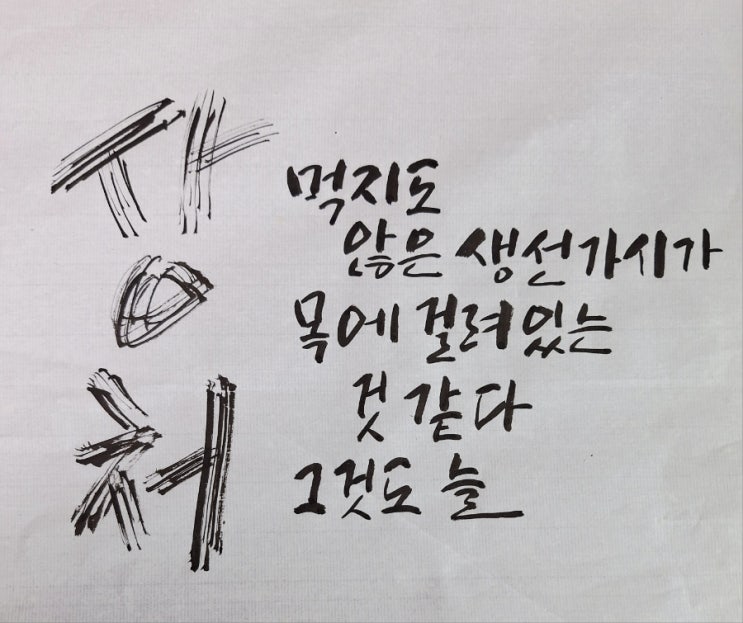 상처
먹지도
않은 생선가시가
목에 걸려있는
것 같다
그것도 늘